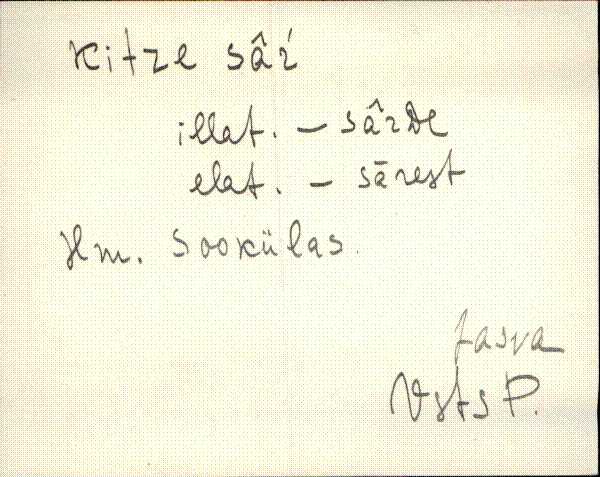 Kitze sâŕ
illat. – sârde
elat. – sārest
Hm. Sookülas.
Jasva
Vsts P.